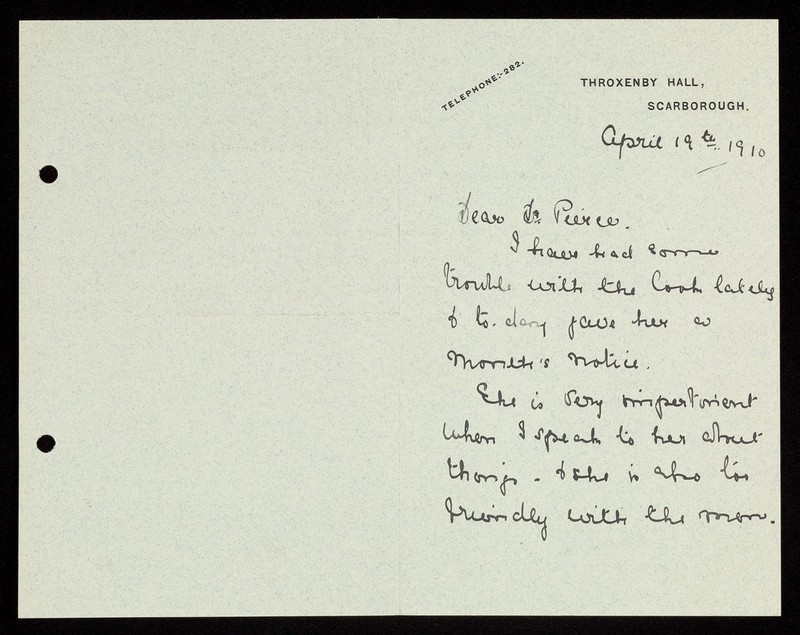 TELEPHONE:-282.
THROXENBY HALL,
SCARBOROUGH.
April 19th 1910
Dear Dr Pierce.
I have had some
trouble with the Cook lately
& to-day gave her a
Month's notice.
She is very impertinent
when I speak to her about
things - & she is also too
friendly with the men.